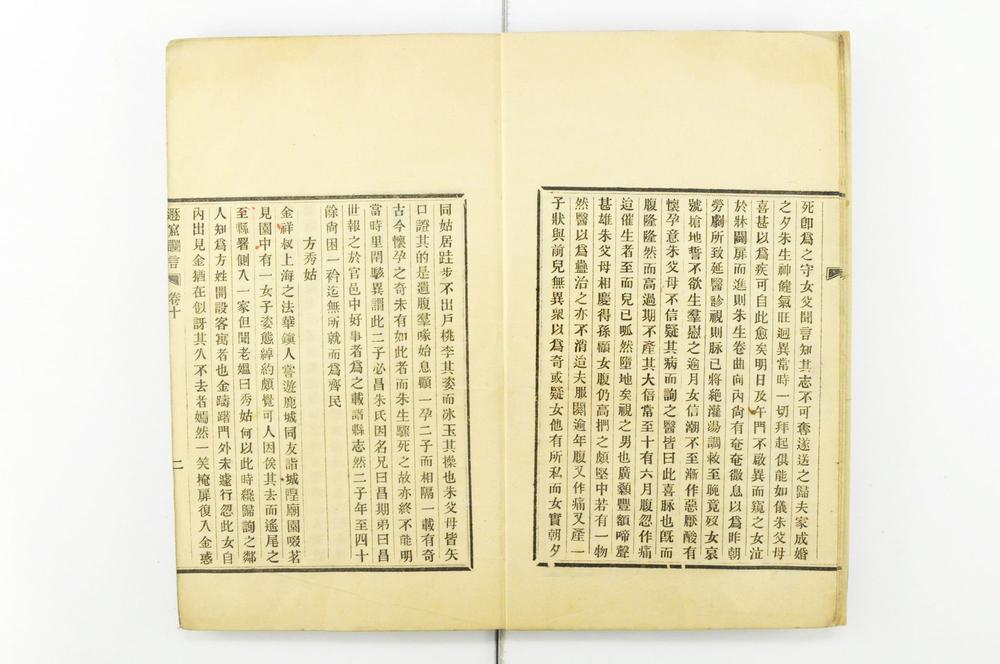 死卽爲之守女父聞言知其志不可奪遂送之歸夫家成婚
之夕朱生神健氣旺迥異常時一切拜起俱能如儀朱父母
喜甚以爲疾可自此愈矣明日及午門不啟異而窺之女泣
於牀闢扉而進則朱生卷曲向內尙有奄奄微息以爲昨朝
勞劇所致延醫診視則脉已將絶灌湯調救至晚竟歿女哀
號搶地誓不欲生羣慰之逾月女信潮不至漸作惡厭酸有
懷孕意朱父母不信疑其病而詢之醫皆曰此喜脉也旣而
腹隆隆然而高過期不產其大倍常至十有六月腹忽作痛
迫催生者至而兒已呱然墮地矣視之男也廣顙豐額啼聲
甚雄朱父母相慶得孫顧女腹仍高捫之頗堅中若有一物
然醫以爲蠱治之亦不消迨夫服闋逾年腹又作痛又產一
子狀與前兒無異衆以爲奇或疑女他有所私而女實朝夕
同姑居跬步不出戶桃李其姿而冰玉其操也朱父母皆矢
口證其的是遺腹羣喙始息顧一孕二子而相隔一載有奇
古今懷孕之奇未有如此者而朱生驟死之故亦終不能明
當時里閈駭異謂此二子必昌朱氏因名兄曰昌期弟曰昌
世報之於官邑中好事者爲之載諸縣志然二子年至四十
餘尙困一衿迄無所就而爲齊民
方秀姑
金祥叔上海之法華鎭人嘗遊鹿城同友詣城隍廟園啜茗
見園中有一女子姿態綽約頗覺可人因俟其去而遙尾之
至縣署側入一家但聞老媼曰秀姑何以此時纔歸詢之鄰
人知爲方姓開設客寓者也金躊躇門外未遽行忽此女自
內出見金猶在似訝其久不去者嫣然一笑掩扉復入金惑
遯窟讕言
卷十
二